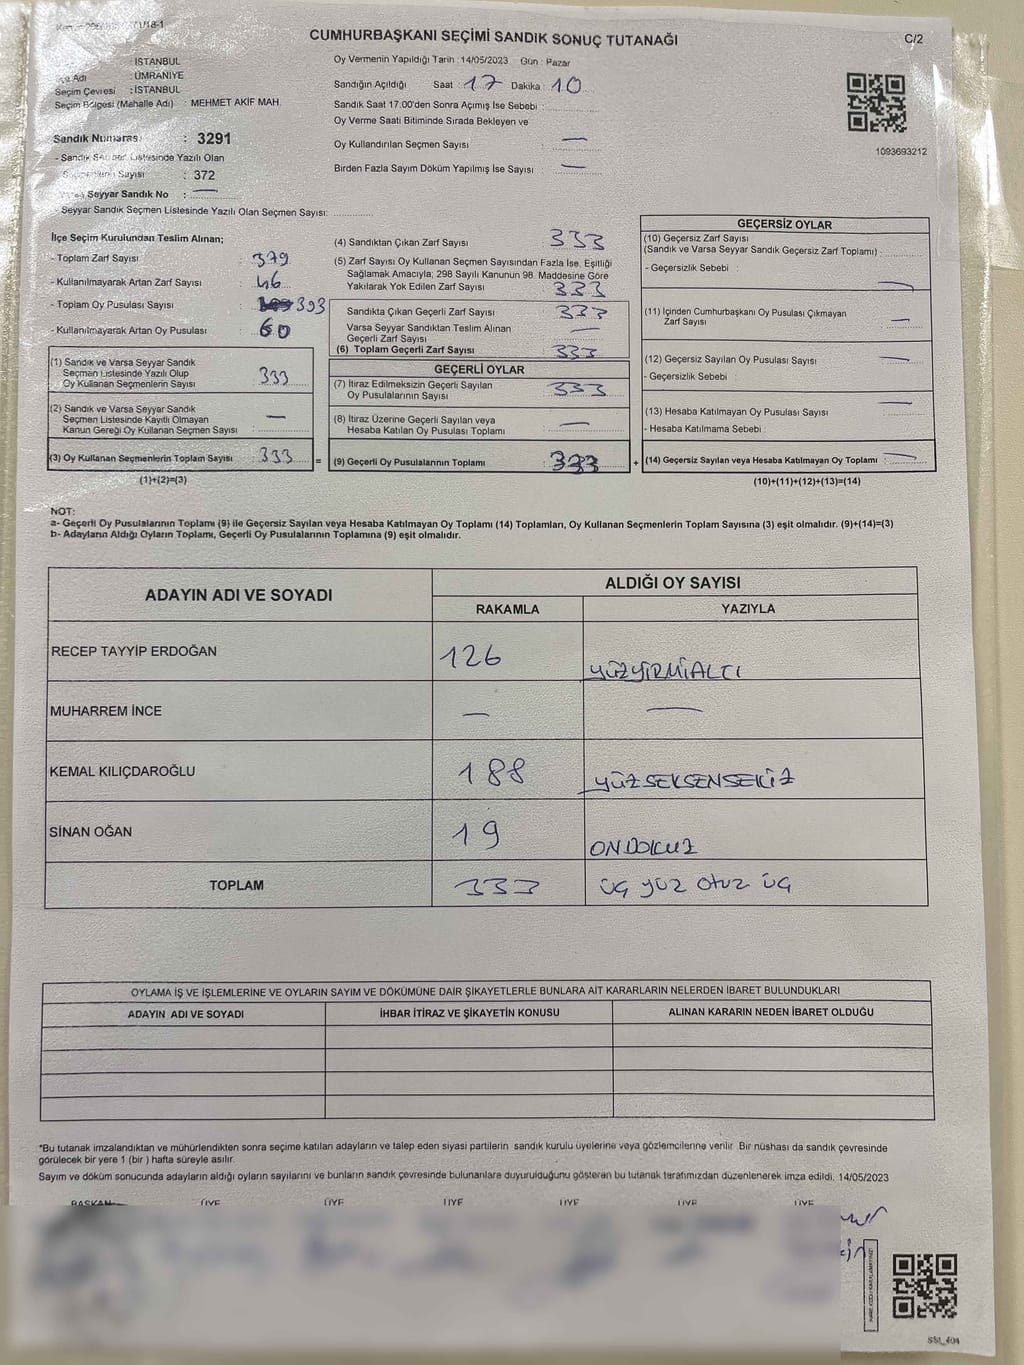 /18-1
CUMHURBAŞKANI SEÇİMİ SANDIK SONUÇ TUTANAĞI
C/2
: İSTANBUL
Adı : ÜMRANİYE
Seçim Çevresi : İSTANBUL
Seçim Bölgesi (Mahalle Adı) : MEHMET AKİF MAH.
Sandık Numarası : 3291
- Sandık Seçmen Listesinde Yazılı Olan
Seçmen Sayısı : 372
Seyyar Sandık No : —
- Seyyar Sandık Seçmen Listesinde Yazılı Olan Seçmen Sayısı:
Oy Vermenin Yapıldığı Tarih : 14/05/2023 Gün : Pazar
Sandığın Açıldığı Saat : 17 Dakika : 10
Sandık Saat 17:00'den Sonra Açımış İse Sebebi :
Oy Verme Saati Bitiminde Sırada Bekleyen ve
Oy Kullandırılan Seçmen Sayısı : —
Birden Fazla Sayım Döküm Yapılmış İse Sayısı : —
1093693212
İlçe Seçim Kurulundan Teslim Alınan;
- Toplam Zarf Sayısı : 379
- Kullanılmayarak Artan Zarf Sayısı : 46
- Toplam Oy Pusulası Sayısı : 393
- Kullanılmayarak Artan Oy Pusulası : 60
(1) Sandık ve Varsa Seyyar Sandık
Seçmen Listesinde Yazılı Olup
Oy Kullanan Seçmenlerin Sayısı : 333
(2) Sandık ve Varsa Seyyar Sandık
Seçmen Listesinde Kayıtlı Olmayan
Kanun Gereği Oy Kullanan Seçmen Sayısı : —
(3) Oy Kullanan Seçmenlerin Toplam Sayısı : 333 =
(1)+(2)=(3)
(4) Sandıktan Çıkan Zarf Sayısı : 333
(5) Zarf Sayısı Oy Kullanan Seçmen Sayısından Fazla İse, Eşitliği
Sağlamak Amacıyla; 298 Sayılı Kanunun 98. Maddesine Göre
Yakılarak Yok Edilen Zarf Sayısı : 333
Sandıkta Çıkan Geçerli Zarf Sayısı : 333
Varsa Seyyar Sandıktan Teslim Alınan
Geçerli Zarf Sayısı : —
(6) Toplam Geçerli Zarf Sayısı : 333
GEÇERLİ OYLAR
(7) İtiraz Edilmeksizin Geçerli Sayılan
Oy Pusulalarının Sayısı : 333
(8) İtiraz Üzerine Geçerli Sayılan veya
Hesaba Katılan Oy Pusulası Toplamı : —
(9) Geçerli Oy Pusulalarının Toplamı : 333 +
GEÇERSİZ OYLAR
(10) Geçersiz Zarf Sayısı
(Sandık ve Varsa Seyyar Sandık Geçersiz Zarf Toplamı) :
- Geçersizlik Sebebi : —
(11) İçinden Cumhurbaşkanı Oy Pusulası Çıkmayan
Zarf Sayısı : —
(12) Geçersiz Sayılan Oy Pusulası Sayısı : —
- Geçersizlik Sebebi :
(13) Hesaba Katılmayan Oy Pusulası Sayısı : —
- Hesaba Katılmama Sebebi :
(14) Geçersiz Sayılan veya Hesaba Katılmayan Oy Toplamı : —
(10)+(11)+(12)+(13)=(14)
NOT:
a- Geçerli Oy Pusulalarının Toplamı (9) ile Geçersiz Sayılan veya Hesaba Katılmayan Oy Toplamı (14) Toplamları, Oy Kullanan Seçmenlerin Toplam Sayısına (3) eşit olmalıdır. (9)+(14)=(3)
b- Adayların Aldığı Oyların Toplamı, Geçerli Oy Pusulalarının Toplamına (9) eşit olmalıdır.
ADAYIN ADI VE SOYADI
ALDIĞI OY SAYISI
RAKAMLA YAZIYLA
RECEP TAYYİP ERDOĞAN 126 YÜZYİRMİALTI
MUHARREM İNCE — —
KEMAL KILIÇDAROĞLU 188 YÜZSEKSENSEKİZ
SİNAN OĞAN 19 ONDOKUZ
TOPLAM 333 üç yüz otuz üç
OYLAMA İŞ VE İŞLEMLERİNE VE OYLARIN SAYIM VE DÖKÜMÜNE DAİR ŞİKAYETLERLE BUNLARA AİT KARARLARIN NELERDEN İBARET BULUNDUKLARI
ADAYIN ADI VE SOYADI İHBAR İTİRAZ VE ŞİKAYETİN KONUSU ALINAN KARARIN NEDEN İBARET OLDUĞU
*Bu tutanak imzalandıktan ve mühürlendikten sonra seçime katılan adayların ve talep eden siyasi partilerin sandık kurulu üyelerine veya gözlemcilerine verilir. Bir nüshası da sandık çevresinde
görülecek bir yere 1 (bir ) hafta süreyle asılır.
Sayım ve döküm sonucunda adayların aldığı oyların sayılarını ve bunların sandık çevresinde bulunanlara duyurulduğunu gösteren bu tutanak tarafımızdan düzenlenerek imza edildi. 14/05/2023
BAŞKAN ÜYE ÜYE ÜYE ÜYE ÜYE ÜYE